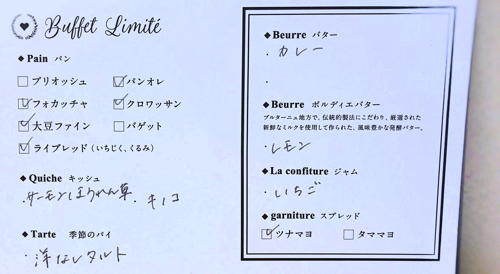 Buffet Limité
◆Pain パン
□ブリオッシュ ☑パンオレ
☑フォカッチャ ☑クロワッサン
☑大豆ファイン □バゲット
☑ライブレッド(いちじく、くるみ)
◆Quiche キッシュ
・サーモンほうれん草 ・キノコ
◆Tarte 季節のパイ
・洋なしタルト
◆Beurre バター
・カレー
・
◆Beurre ボルディエバター
ブルターニュ地方で、伝統的製法にこだわり、厳選された
新鮮なミルクを使用して作られた、風味豊かな発酵バター。
・レモン
◆La confiture ジャム
・いちご
◆garniture スプレッド
☑ツナマヨ □タママヨ